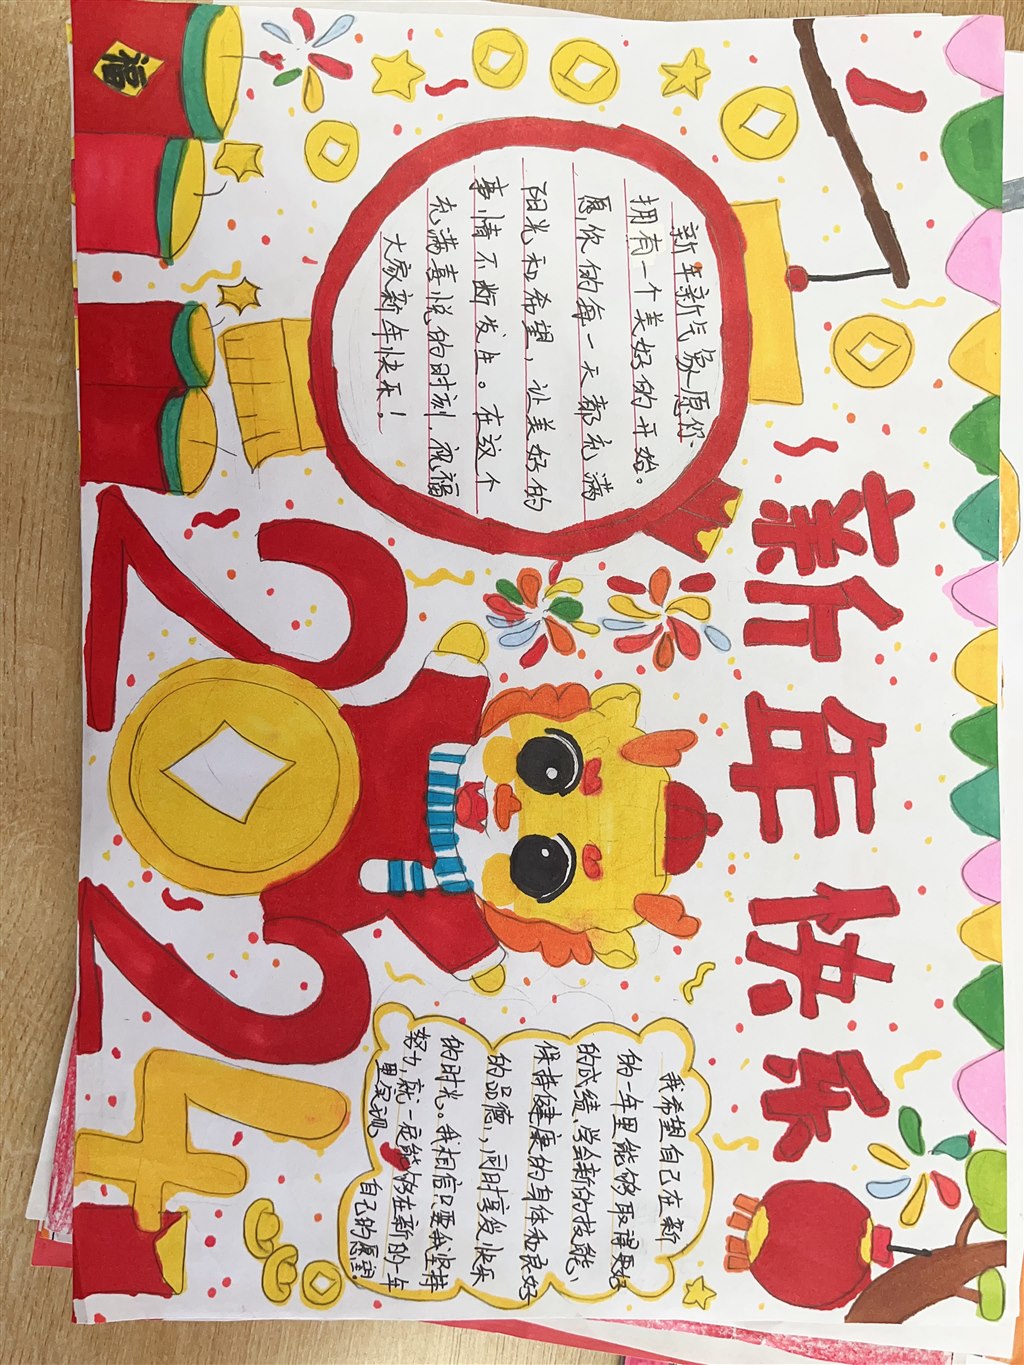 新年快乐
新年新气象愿你
拥有一个美好的开始。
愿你的每一天都充满
阳光和希望，让美好的
事情不断发生。在这个
充满喜悦的时刻，祝福
大家新年快乐！
我希望自己在新
的一年里能够取得更好
的成绩、学会新的技能、
保持健康的身体和良好
的品德，同时享受快乐
的时光。我相信只要我坚持
努力，就一定能够在新的一年
里实现自己的愿望。
福
2024